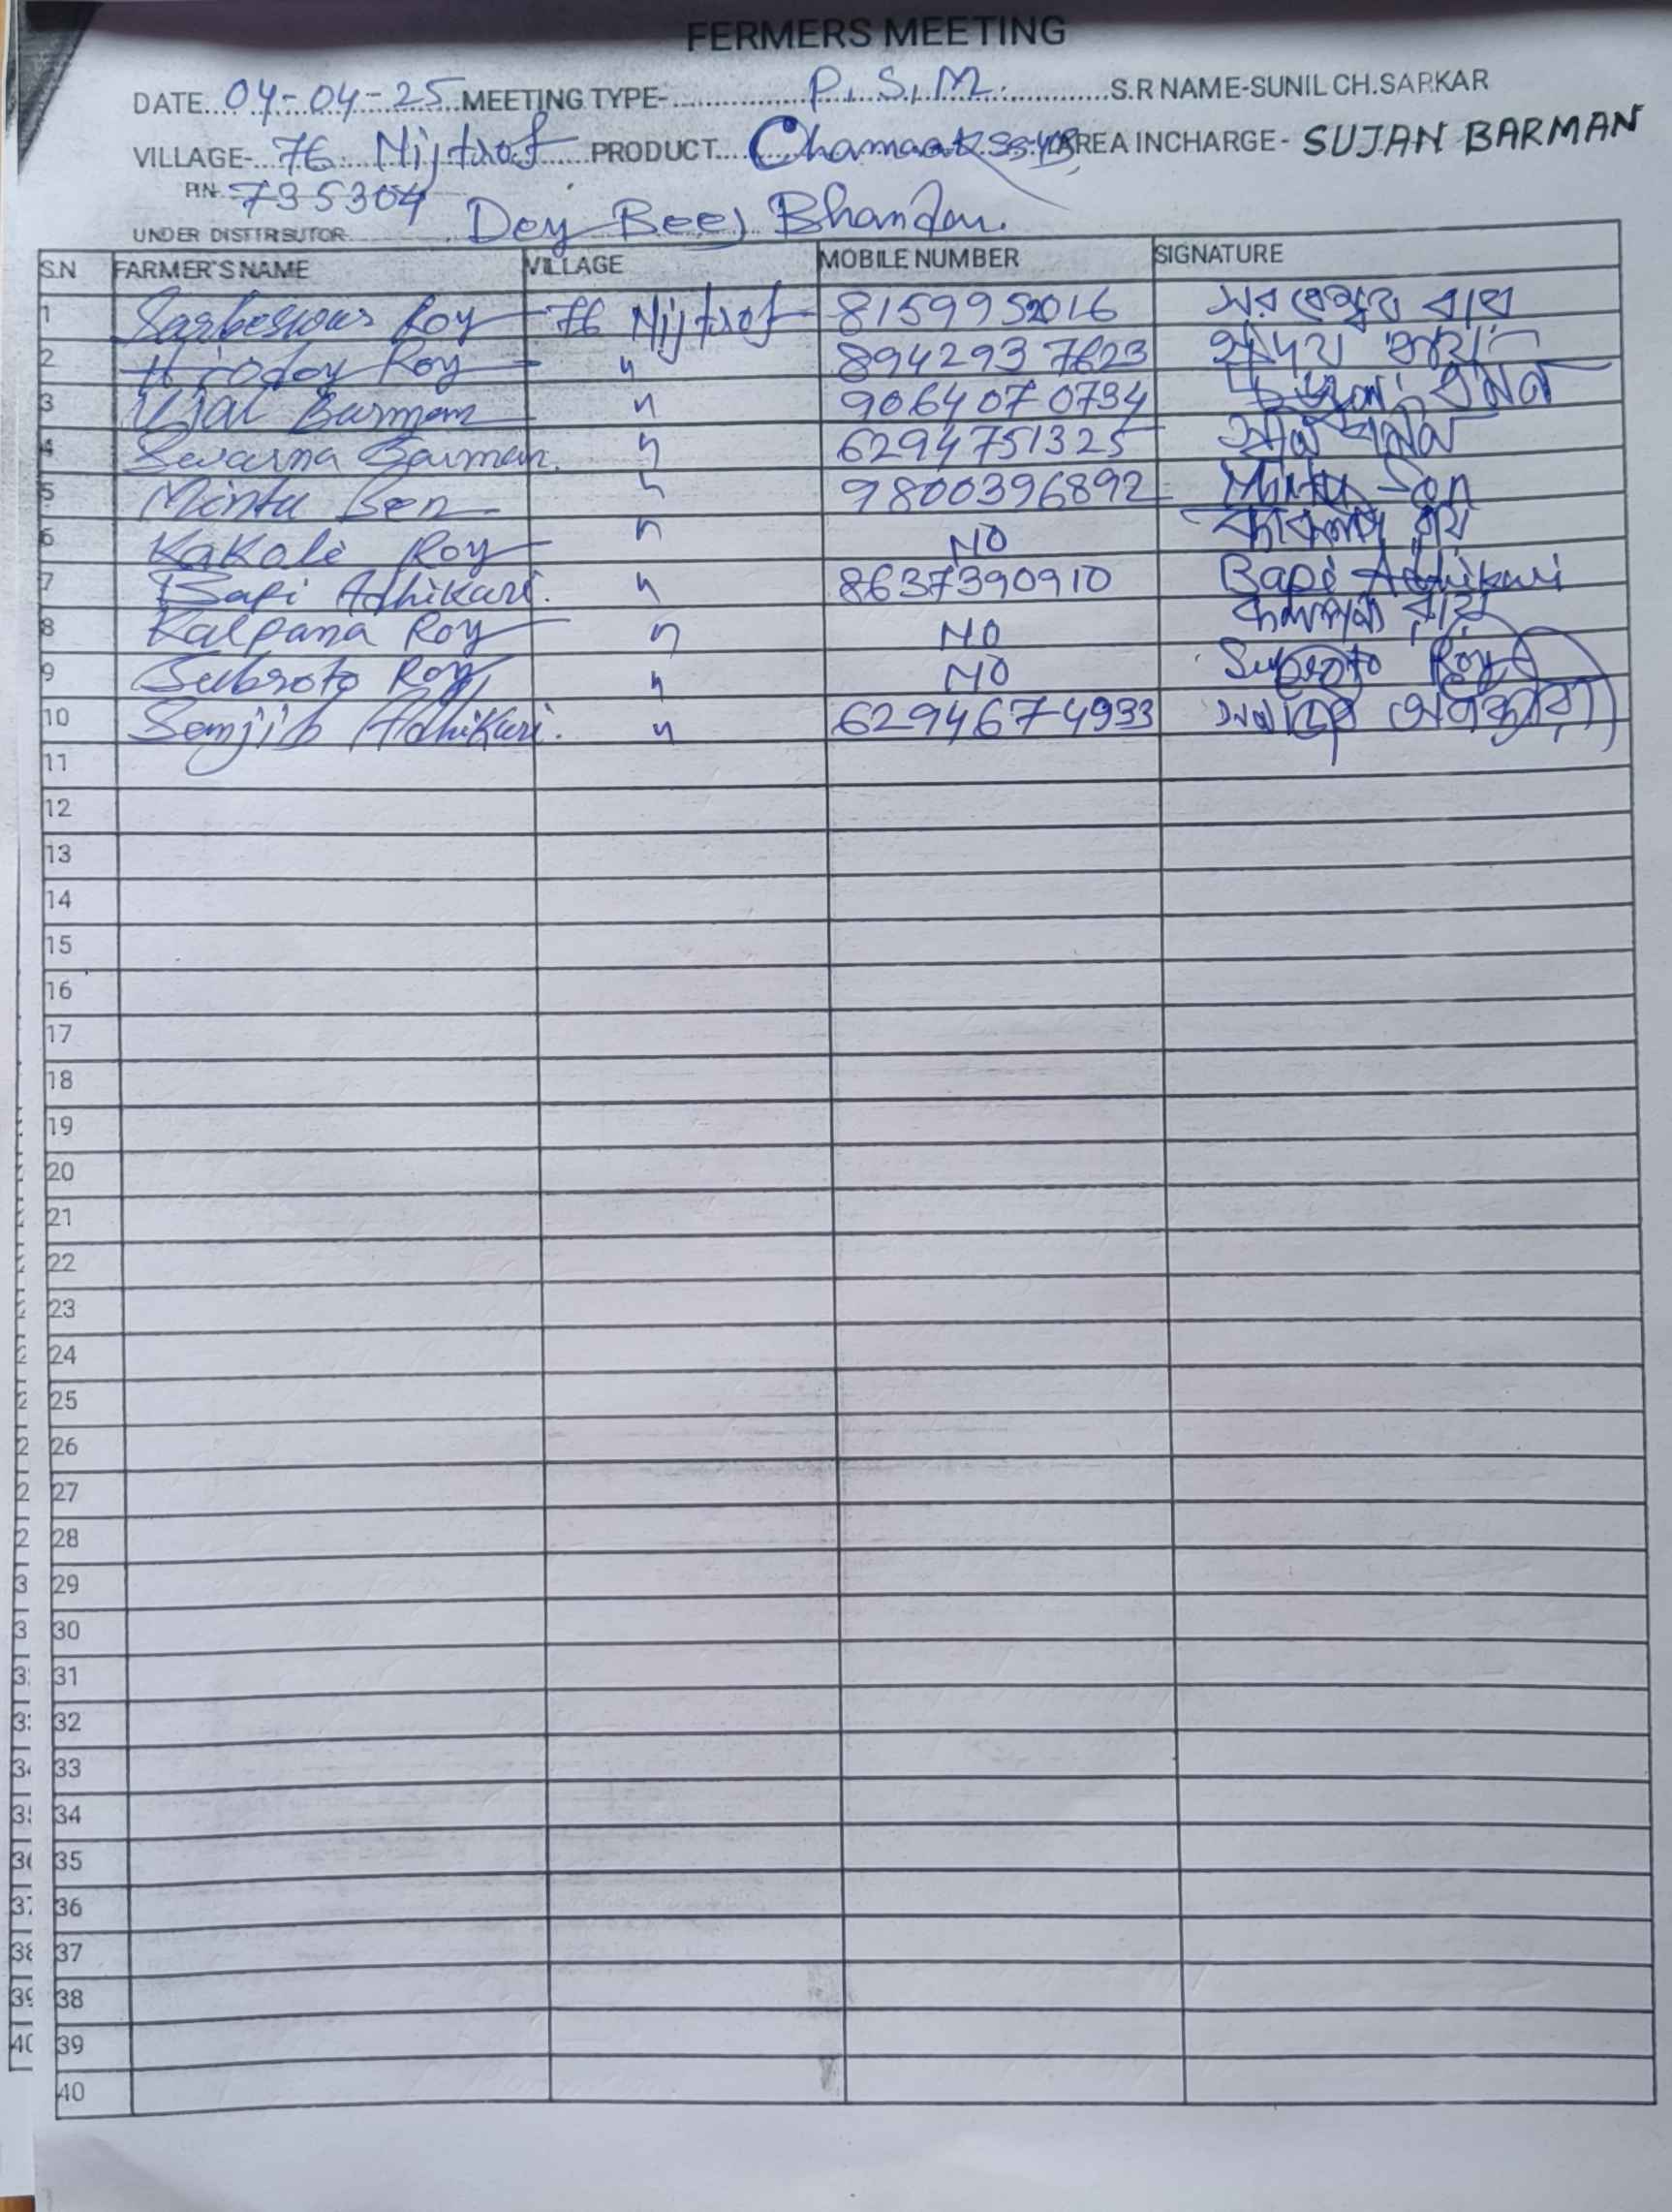 FERMERS MEETING
DATE..04-04-25..MEETING TYPE-..........P.S.M..........S.R NAME-SUNIL CH.SARKAR
VILLAGE-..76 Nijtraf......PRODUCT...Chamaak AREA INCHARGE- SUJAN BARMAN
PIN- 735304
UNDER DISTTRBUTOR........Dey Beej Bhandar.
S.N FARMER'S NAME VILLAGE MOBILE NUMBER SIGNATURE
1 Sarbeswar Roy 76 Nijtraf 8159952016 রায়
2 Hroday Roy " 8942937623
3 Ujal Barman " 9064070734 বর্মন
4 Swarna Barman. " 6294751325 বর্মন
5 Mintu Sen " 9800396892 Mintu Sen
6 Kakole Roy " NO রায়
7 Bapi Adhikari. " 8637390910 Bapi Adhikari
8 Kalpana Roy " NO কল্পনা রায়
9 Subroto Roy " NO Subroto Roy
10 Sanjib Adhikari. " 6294674933
11
12
13
14
15
16
17
18
19
20
21
22
23
24
25
26
27
28
29
30
31
32
33
34
35
36
37
38
39
40